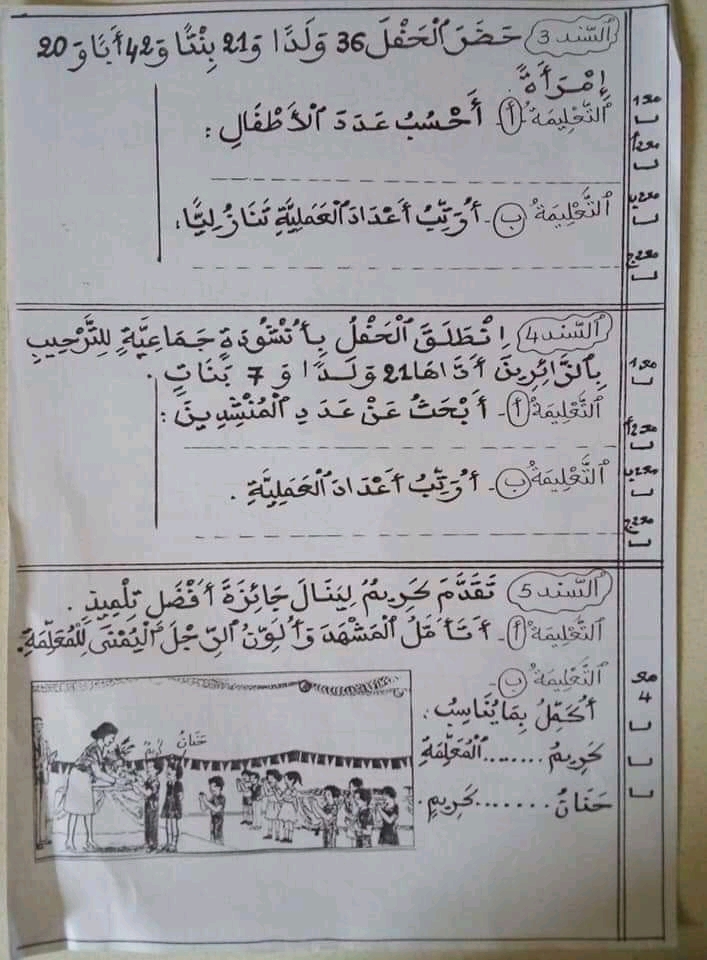 السّند 3 حَضَرَ الْحَفْلَ 36 وَلَدًا وَ 21 بِنْتًا وَ 42 أَبًا وَ 20
إِمْرَأَةً.
التَّعْلِيمَةُ أ - أَحْسُبُ عَدَدَ الْأَطْفَالِ :
التَّعْلِيمَةُ ب - أُرَتِّبُ أَعْدَادَ الْعَمَلِيَّةِ تَنَازُلِيًّا.
مع1
مع2أ
مع2ب
مع2ج
السّند 4 اِنْطَلَقَ الْحَفْلُ بِأُنْشُودَةٍ جَمَاعِيَّةٍ لِلتَّرْحِيبِ
بِالزَّائِرِينَ أَدَّاهَا 21 وَلَدًا وَ 7 بَنَاتٍ .
التَّعْلِيمَةُ أ - أَبْحَثُ عَنْ عَدَدِ الْمُنْشِدِينَ :
التَّعْلِيمَةُ ب - أُرَتِّبُ أَعْدَادَ الْعَمَلِيَّةِ .
مع1
مع2أ
مع2ب
مع2ج
السّند 5 تَقَدَّمَ كَرِيمٌ لِيَنَالَ جَائِزَةَ أَفْضَلِ تِلْمِيذٍ .
التَّعْلِيمَةُ أ - أَتَأَمَّلُ الْمَشْهَدَ وَأُلَوِّنُ الرِّجْلَ الْيُمْنَى لِلْمُعَلِّمَةِ.
التَّعْلِيمَةُ ب
أُكَمِّلُ بِمَا يُنَاسِبُ :
كَرِيمٌ ........ الْمُعَلِّمَةِ
حَنَانُ ........ كَرِيمٍ.
مع
4
حَنَانُ
كَرِيمٌ